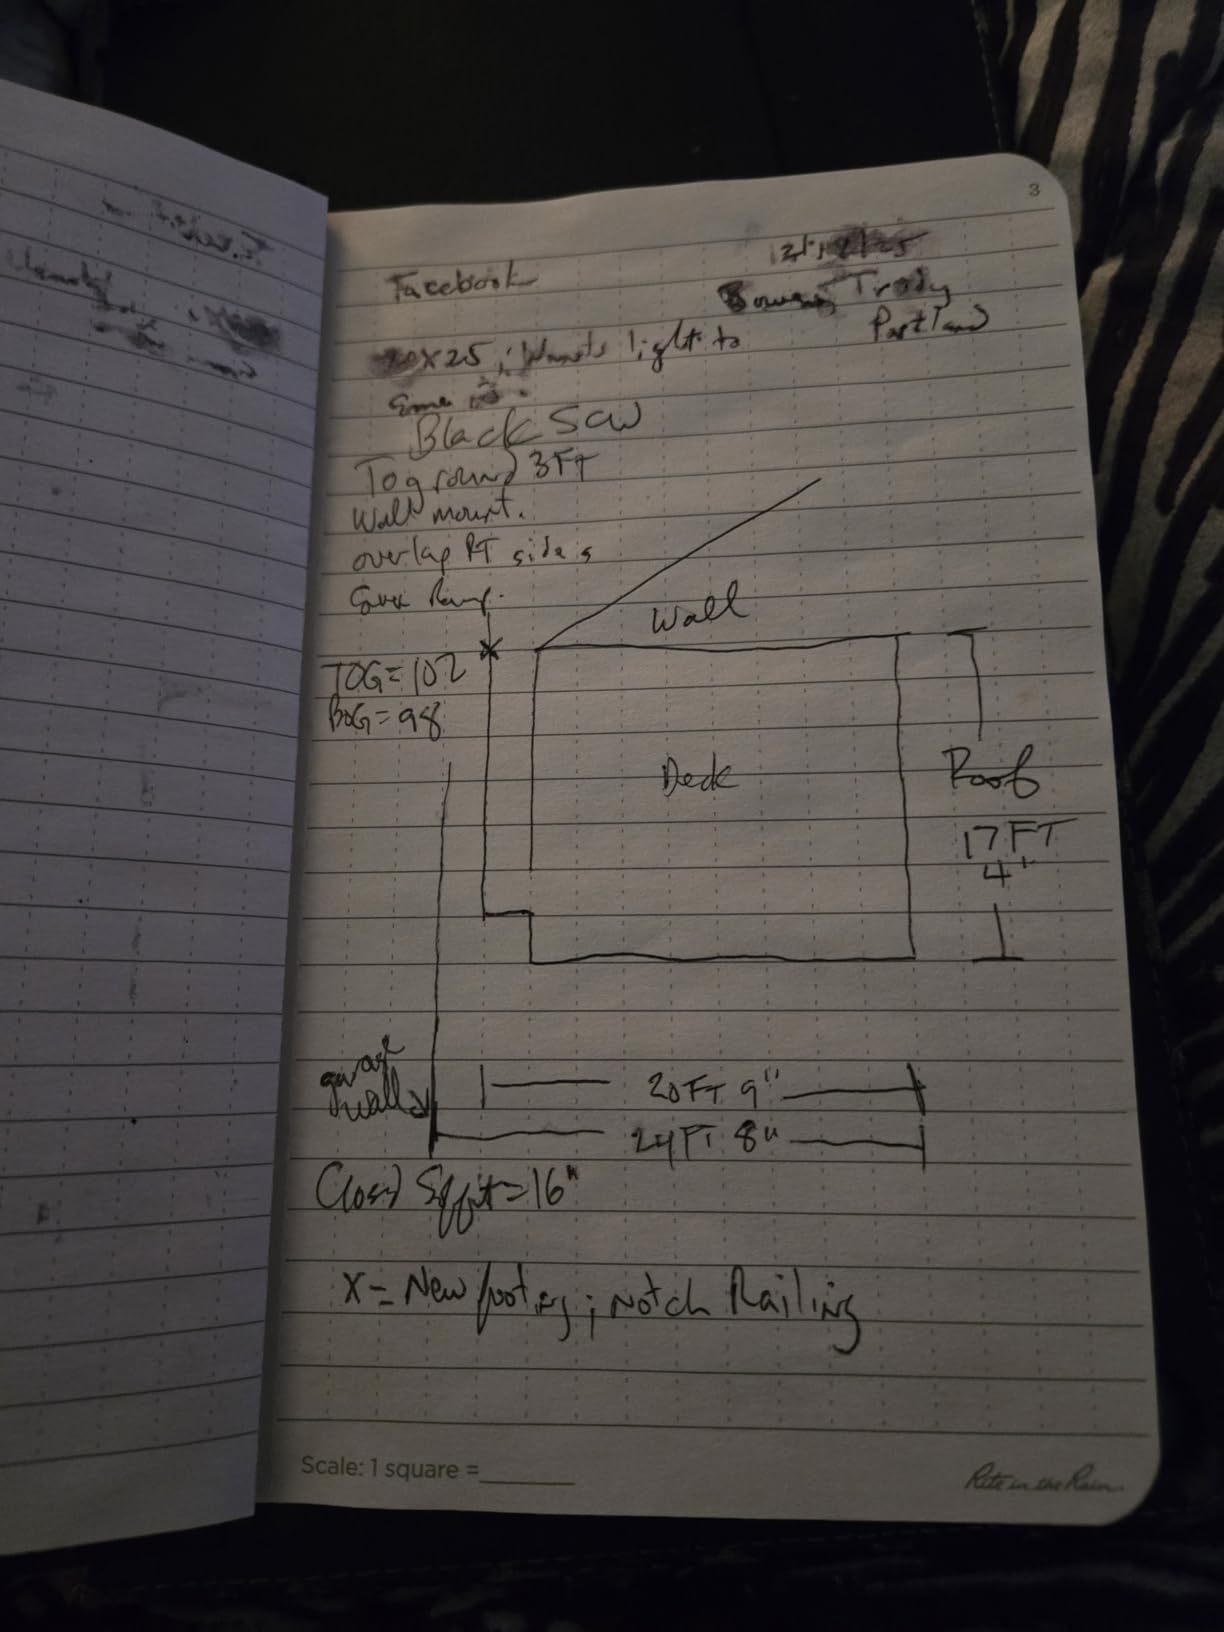 3
Facebook
Trody
Portland
x25; Wants light to
Black SCW
To ground 3 FT
Wall mount.
overlap RT side s
Over Ramp.
Wall
TOG = 102
BOG = 98
Deck
Roof
17 FT
4"
20 FT 9"
wall
24 FT 8"
= 16"
X = New footing; Notch Railing
Scale: 1 square =
Rite in the Rain